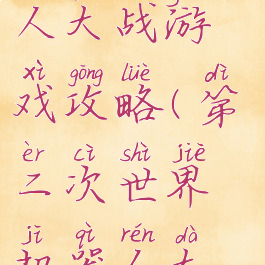 人大战游
xì gōng lüè dì
戏攻略(第
èr cì shì jiè
二次世界
jī qì rén dà
机器人大